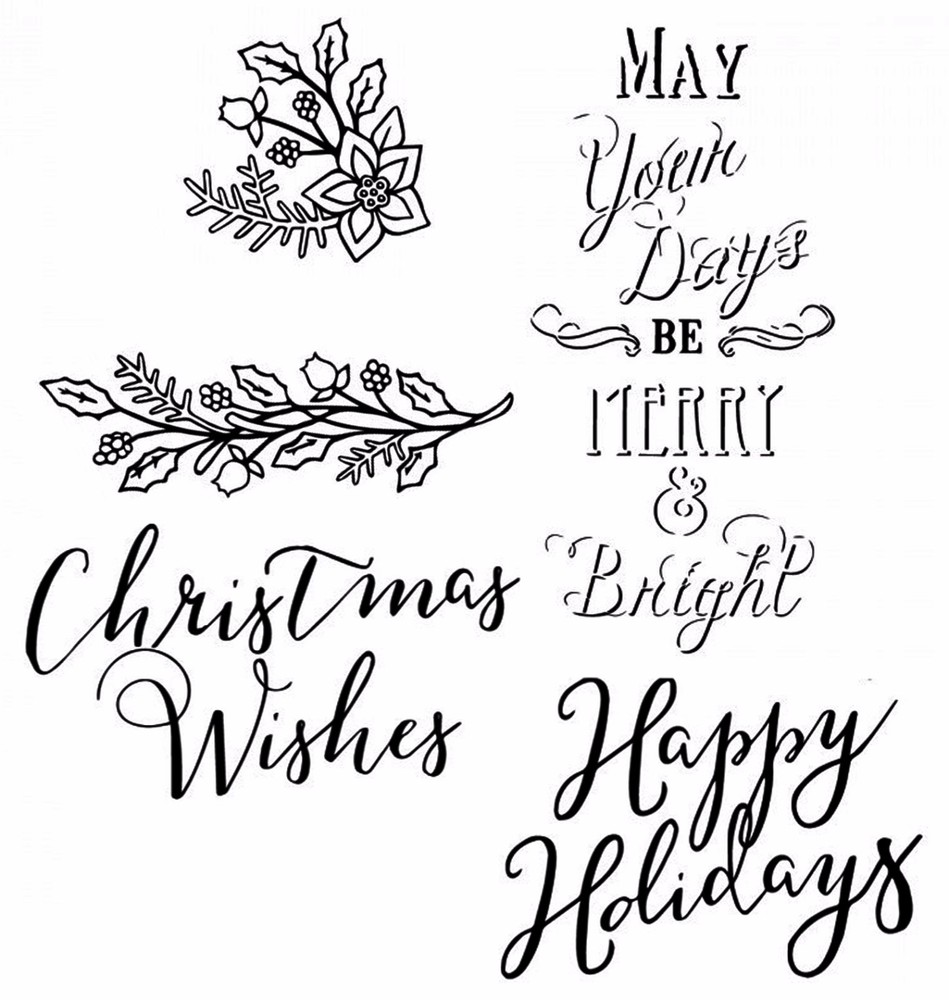 MAY
Your
Days
BE
MERRY
&
Bright
Christmas
Wishes
Happy
Holidays